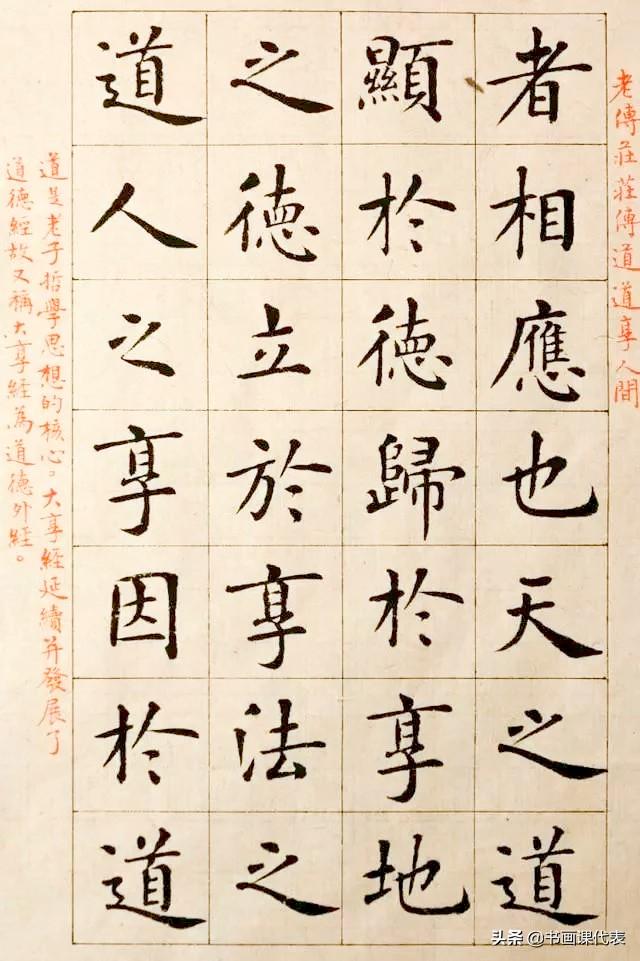 老傳莊莊傳道道享人間
者相應也天之道
顯於德歸於享地
之德立於享法之
道人之享因於道
道是老子哲學思想的核心。大享經延續并發展了
道德經故又稱大享經為道德外經。
头条@书画课代表